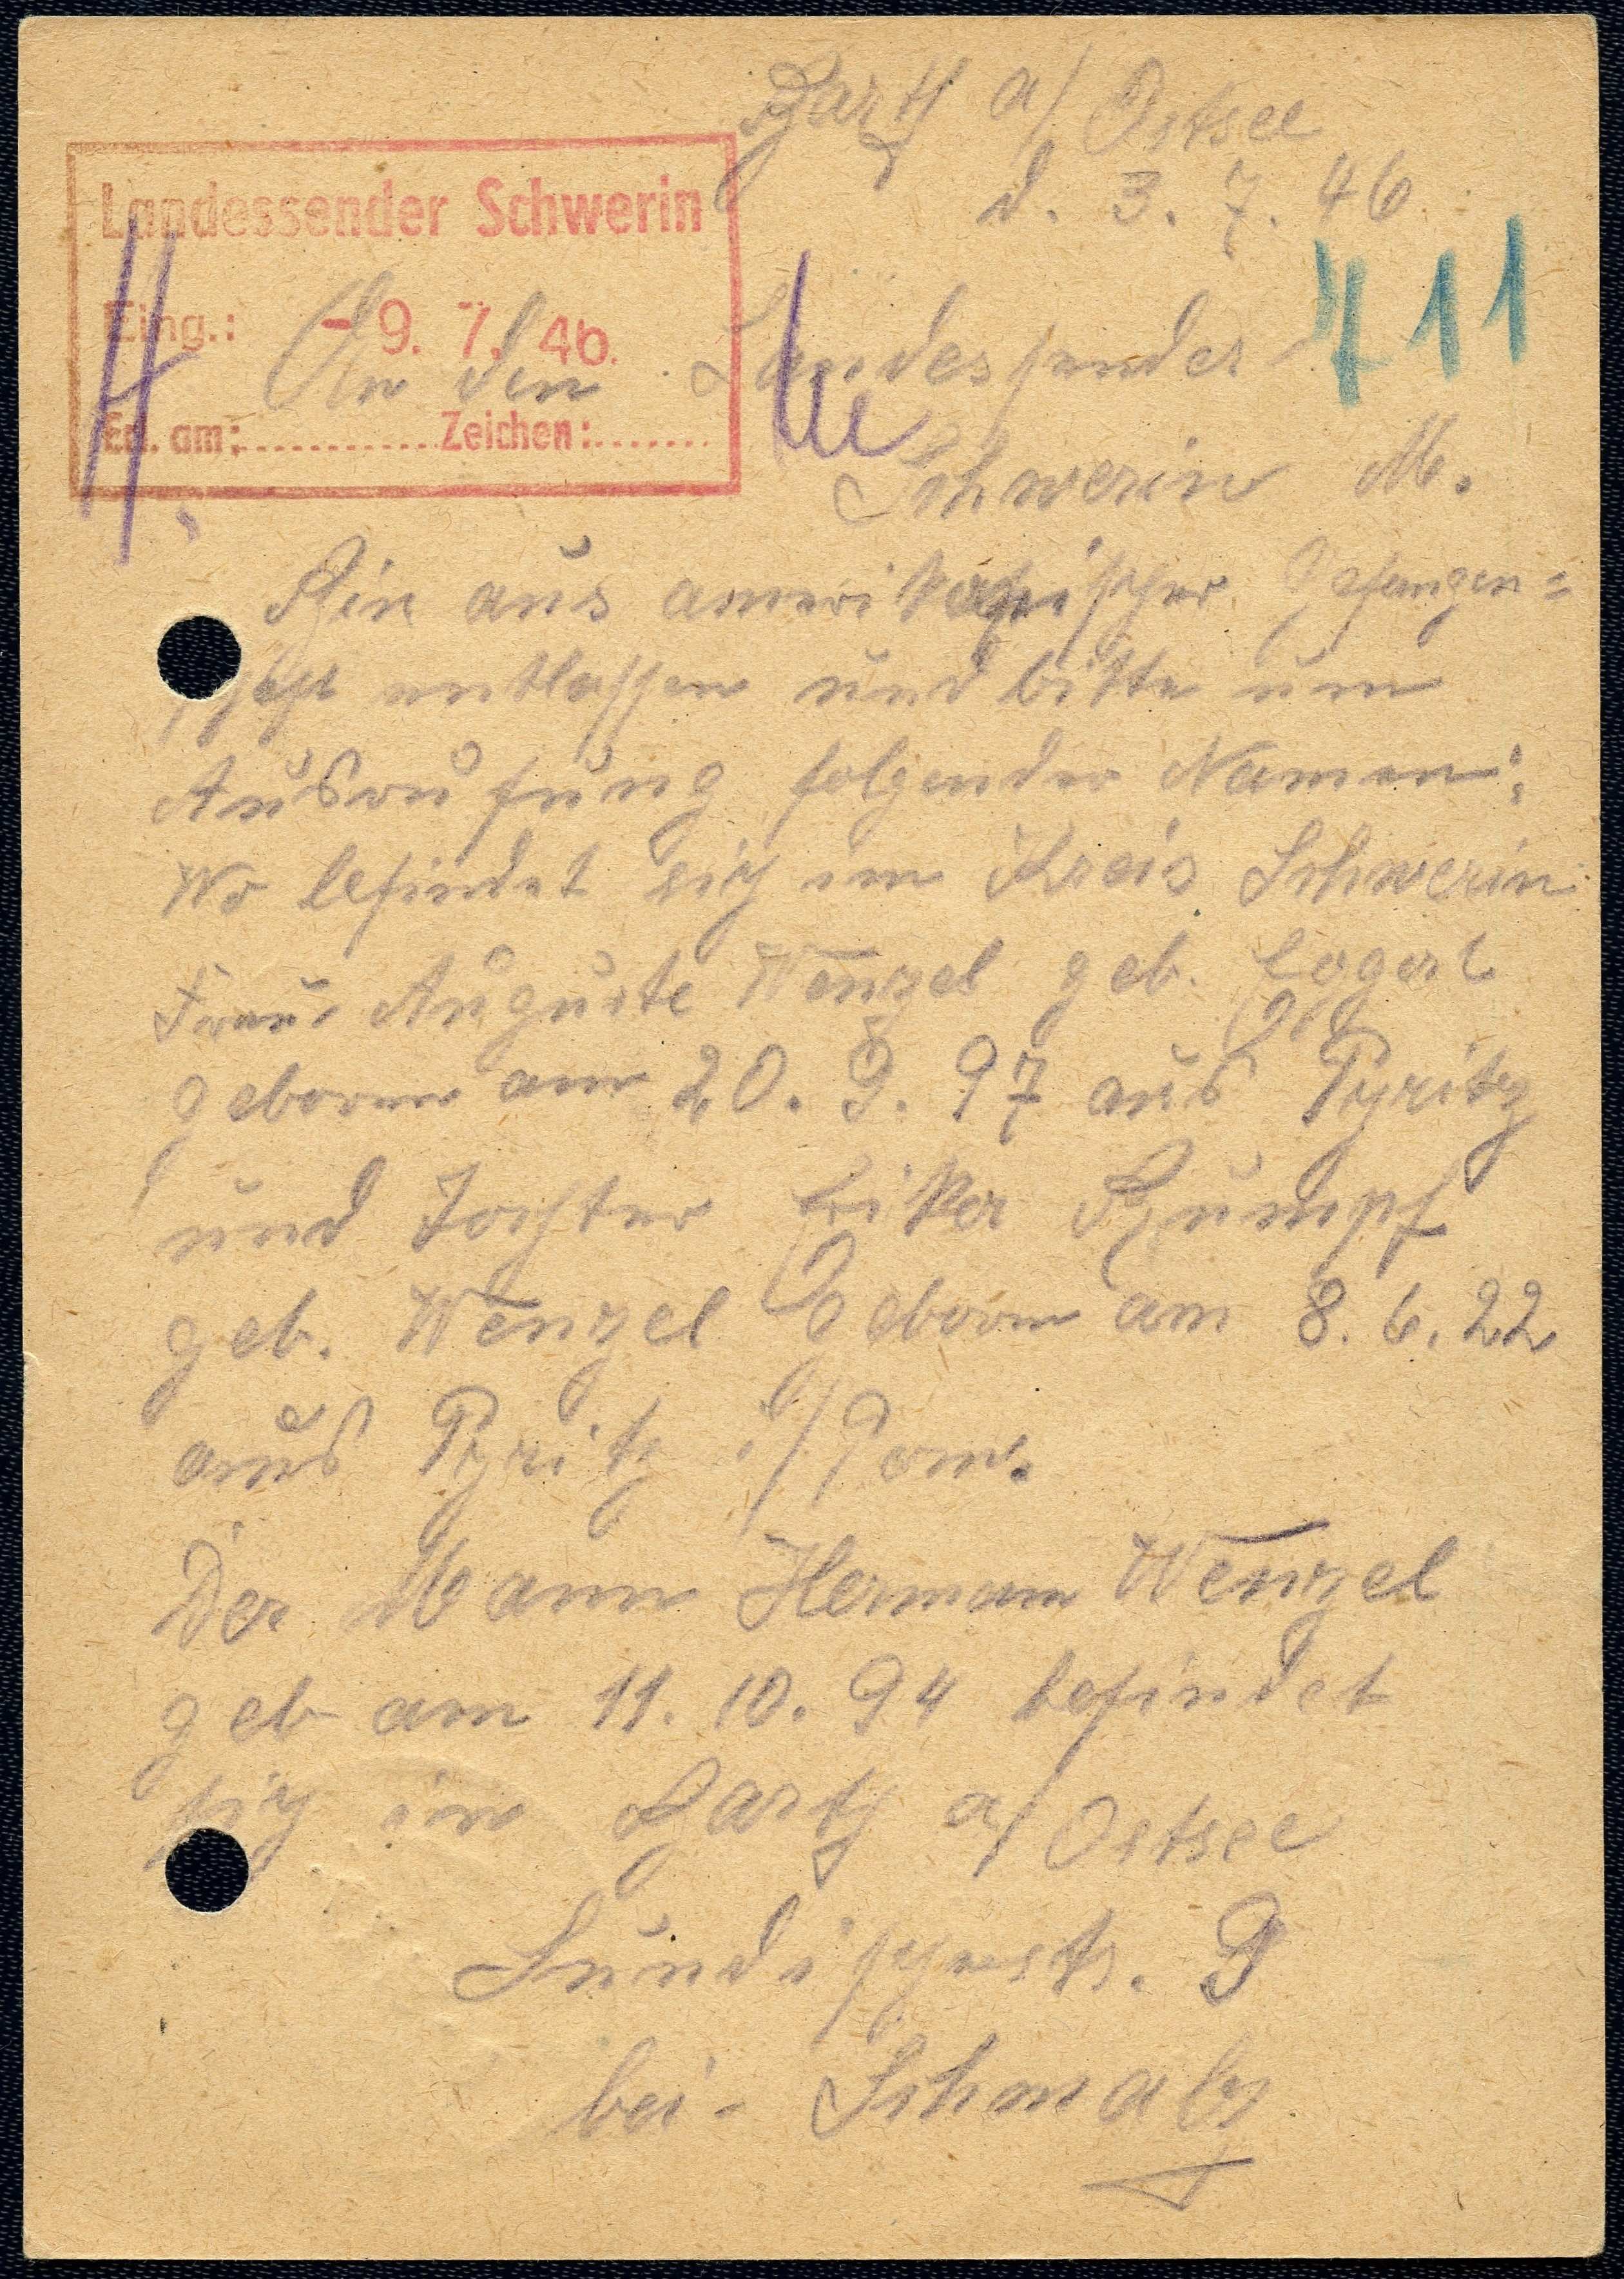 Barth a/ Ostsee
d. 3. 7. 46
Landessender Schwerin
Eing.: - 9. 7. 46.
Ed. am: Zeichen:
711
An den Landessender
Schwerin M.
Bin aus amerikanischer Gefangen=
schaft entlassen und bitte um
Ausrufung folgender Namen:
Wo befindet sich im Kreis Schwerin
Frau Auguste Wenzel geb.
geboren am 20. 9. 97 aus Pyritz
und Tochter Erika Rumpf
geb. Wenzel geboren am 8. 6. 22
aus Pyritz i/Pom.
Der Mann Hermann Wenzel
geb am 11. 10. 94 befindet
sich in Barth a/ Ostsee
Sundischestr. 9
bei Schmalz